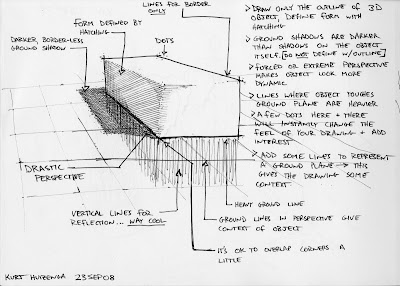 LINES FOR BORDER
ONLY
FORM DEFINED BY
HATCHING
DOTS
DARKER BORDER-LESS
GROUND SHADOW
DRASTIC
PERSPECTIVE
VERTICAL LINES FOR
REFLECTION... WAY COOL
HEAVY GROUND LINE
GROUND LINES IN PERSPECTIVE GIVE
CONTEXT OF OBJECT
IT'S OK TO OVERLAP CORNERS A
LITTLE
DRAW ONLY THE OUTLINE OF 3D
OBJECT, DEFINE FORM WITH
HATCHING
GROUND SHADOWS ARE DARKER
THAN SHADOWS ON THE OBJECT
ITSELF. [DO NOT DEFINE W/OUTLINE]
FORCED OR EXTREME PERSPECTIVE
MAKES OBJECT LOOK MORE
DYNAMIC
LINES WHERE OBJECT TOUCHES
GROUND PLANE ARE HEAVIER
A FEW DOTS HERE + THERE
WILL INSTANTLY CHANGE THE
FEEL OF YOUR DRAWING + ADD
INTEREST
ADD SOME LINES TO REPRESENT
A GROUND PLANE → THIS
GIVES THE DRAWING SOME
CONTEXT
KURT 23SEP08